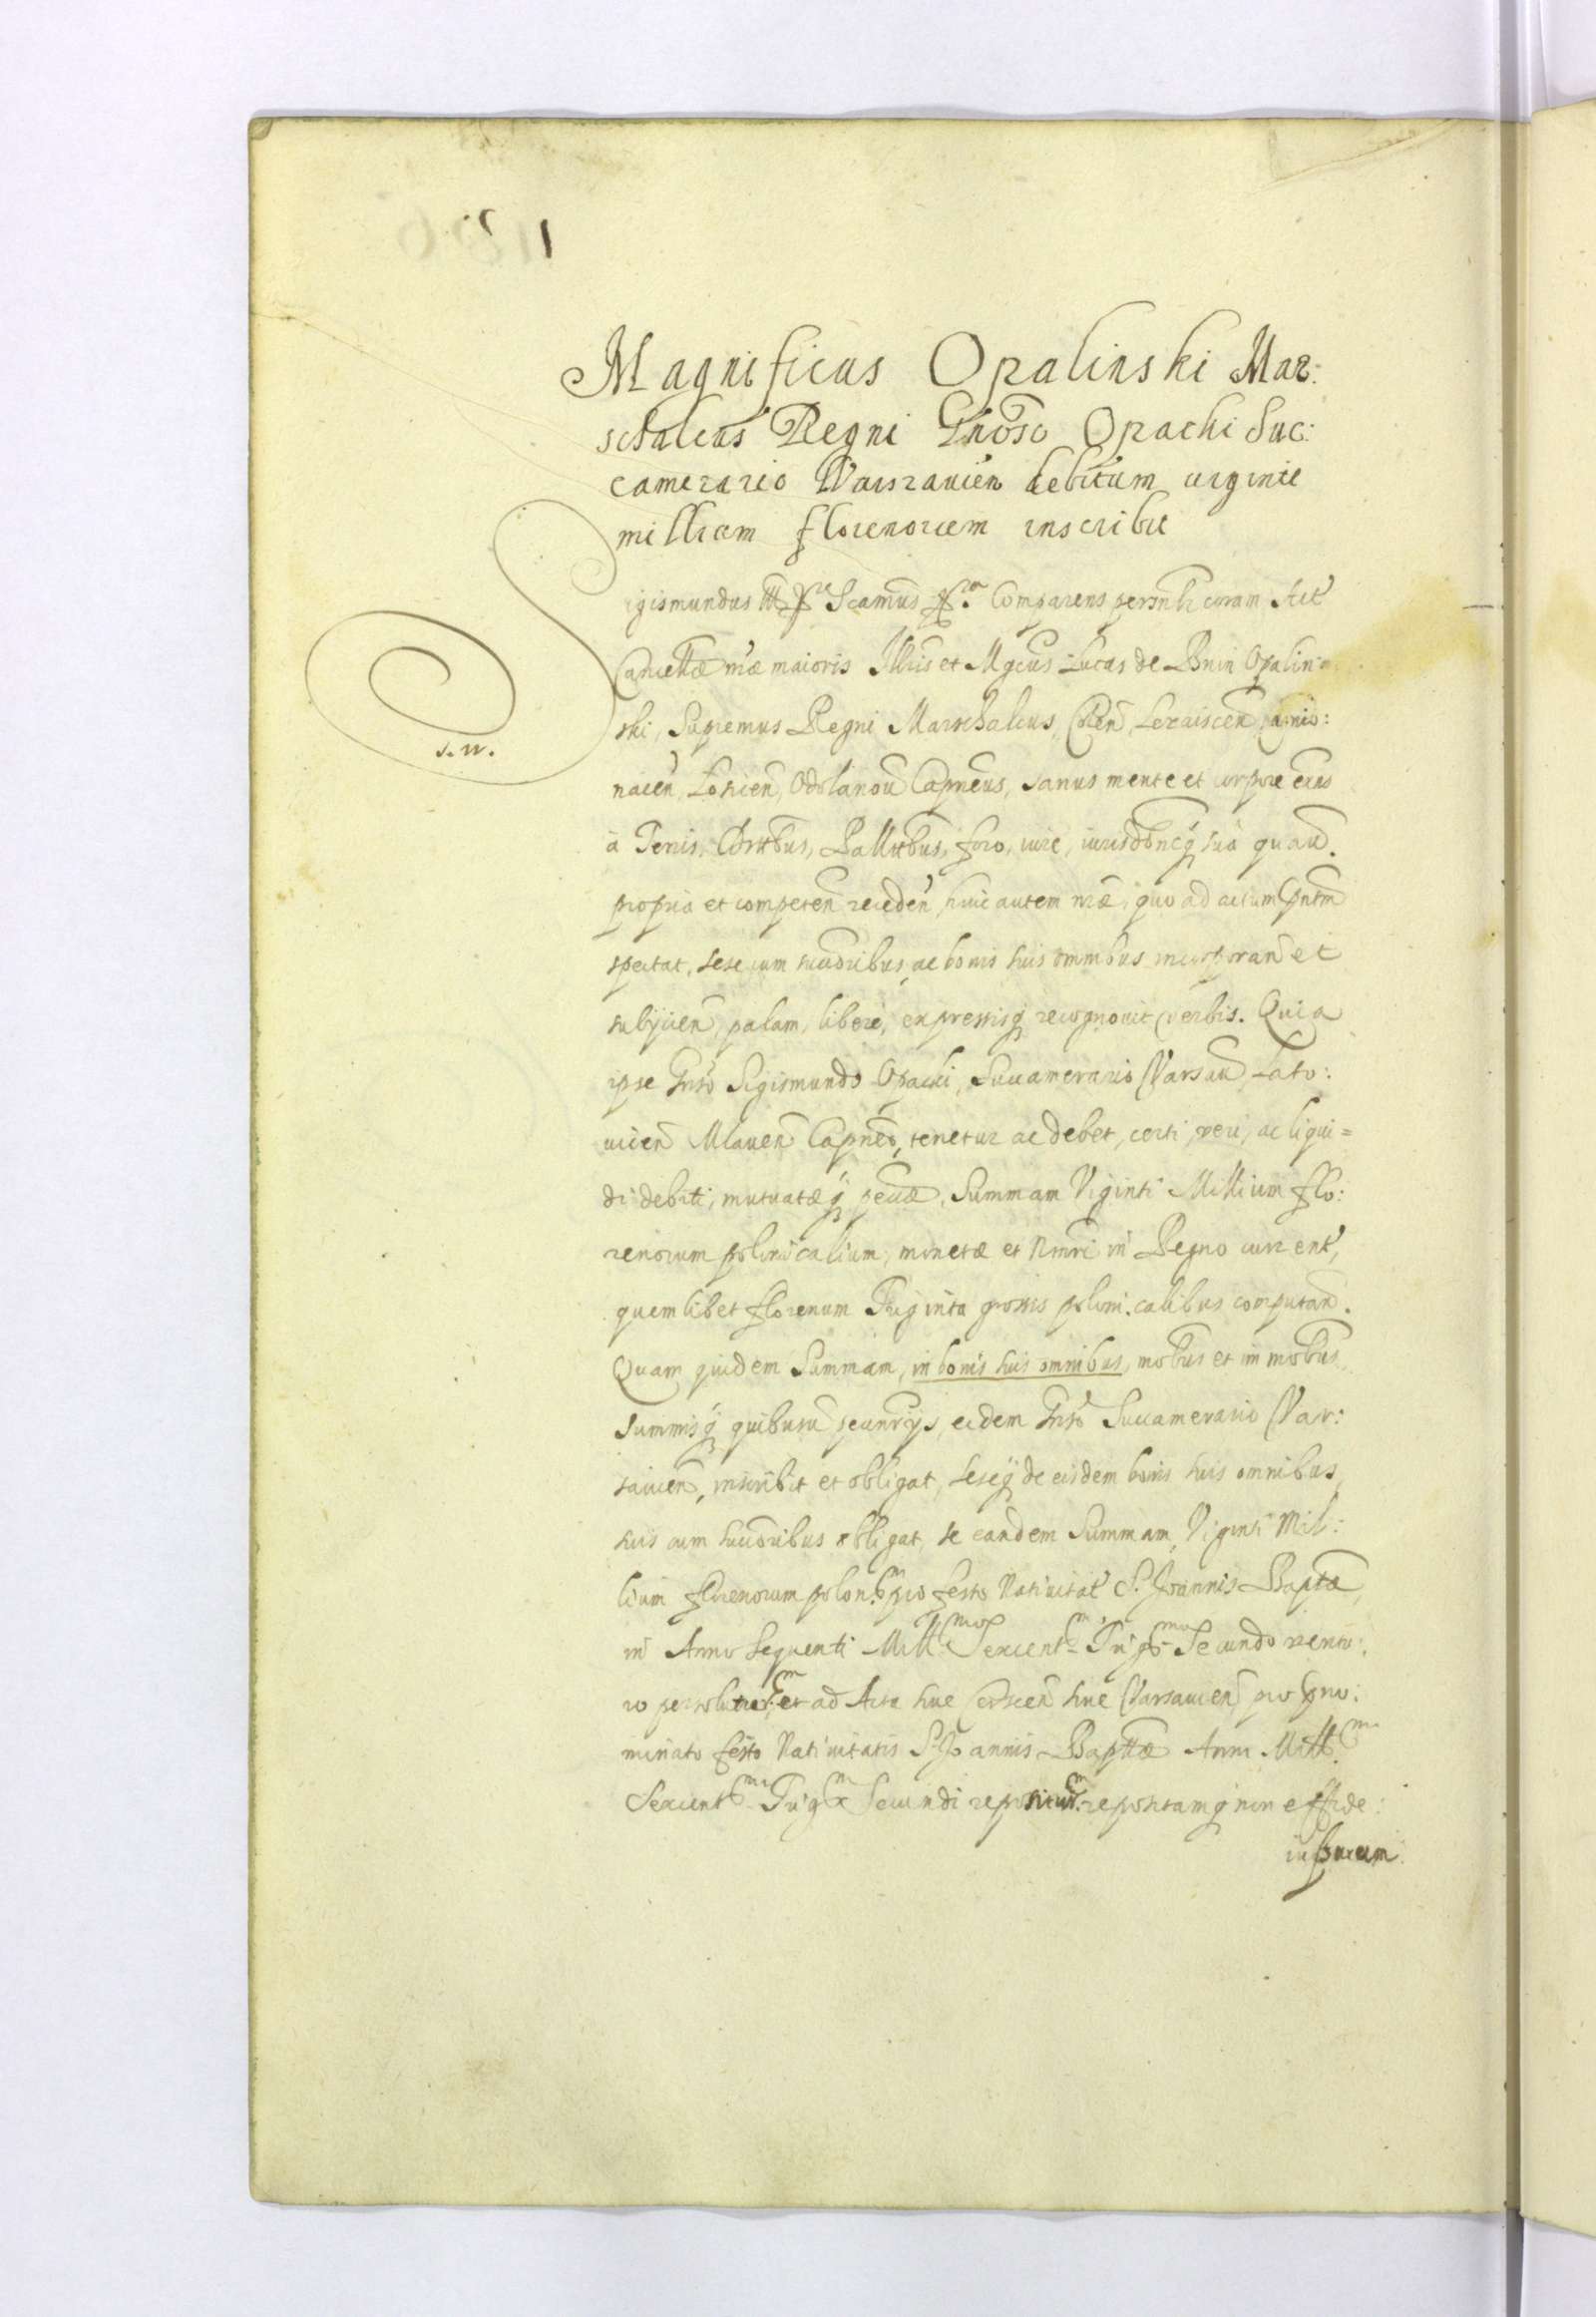 Magnificus Opalinski Mar:
schalcus Regni Gnoso Opacki Suc:
camerario Warszavien debitum viginti
millium florenorum inscribit
Sigismundus III Scamus Comparens personlr coram Act
Cancellæ nræ maioris Illris et Mgcus Lucas de Bnin Opalin
ski, Supremus Regni Marschalcus, Leraiscen
nacen, Losicen, Odolanou Capneus, sanus mente et corpore exns
à Terris, Distbus, Pallatbus, foro, iure, iurisdoneq sua quau.
propria et competen receden, huic autem nræ, quo ad actum pntm
spectat, sese cum succoribus, ac bonis suis omnibus incorporan et
subijcien, palam, liberè, expressisq recognouit verbis. Quia
ipse Gnso Sigismundo Opacki, Succamerario Varsau, Lato:
uicien Mlauen Capneo, tenetur ac debet, certi, veri, ac liqui=
di debiti, mutuatæq pecuæ, Summam Viginti Millium flo:
renorum polonicalium, monetæ et Numri in Regno current,
quemlibet florenum Triginta grossis polonicalibus computan.
Quam quidem Summam, in bonis suis omnibus, mobbus et immobbus
summisq quibusu pecunrijs, eidem Gnso Succamerario Var:
sauien, inscribit et obligat, seseq de eisdem bonis suis omnibus,
suis cum succoribus obligat, se eandem Summam, Viginti Mil:
lium florenorum polon. pro festo Natiuitat S. Joannis Baptæ,
in Anno sequenti Millmo Sexcentmo Trigmo Secundo ventu:
ro persolutur. et ad Acta siue Castren siue Varsauien pro pno:
minato festo Natiuitatis S. Joannis Baptæ Anni Millmi
Sexcentmi Trigmi Secundi repositur. repositamq non effide:
iussurum
s. w.